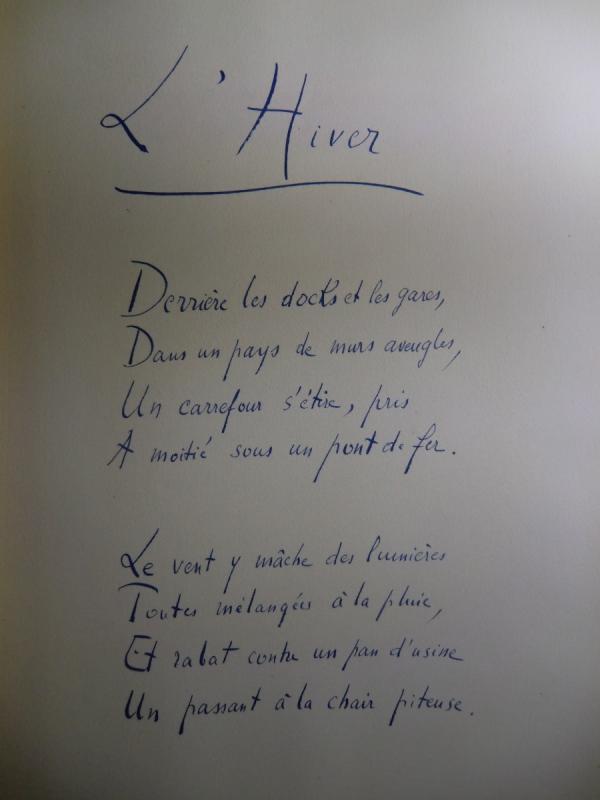 L'Hiver
Derrière les docks et les gares,
Dans un pays de murs aveugles,
Un carrefour s'étire, pris
A moitié sous un pont de fer.
Le vent y mâche des lumières
Toutes mélangées à la pluie,
Et rabat contre un pan d'usine
Un passant à la chair piteuse.